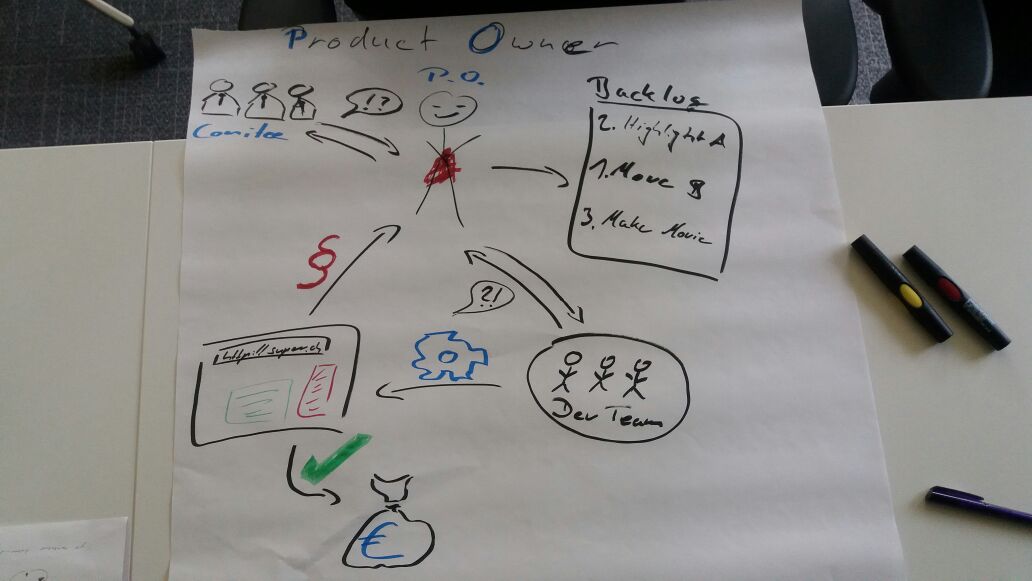 Product Owner
P.O.
!?
Comitee
Backlog
2. Highlight A
1. Move B
3. Make Movie
§
?!
http://super.ch
Dev Team
€